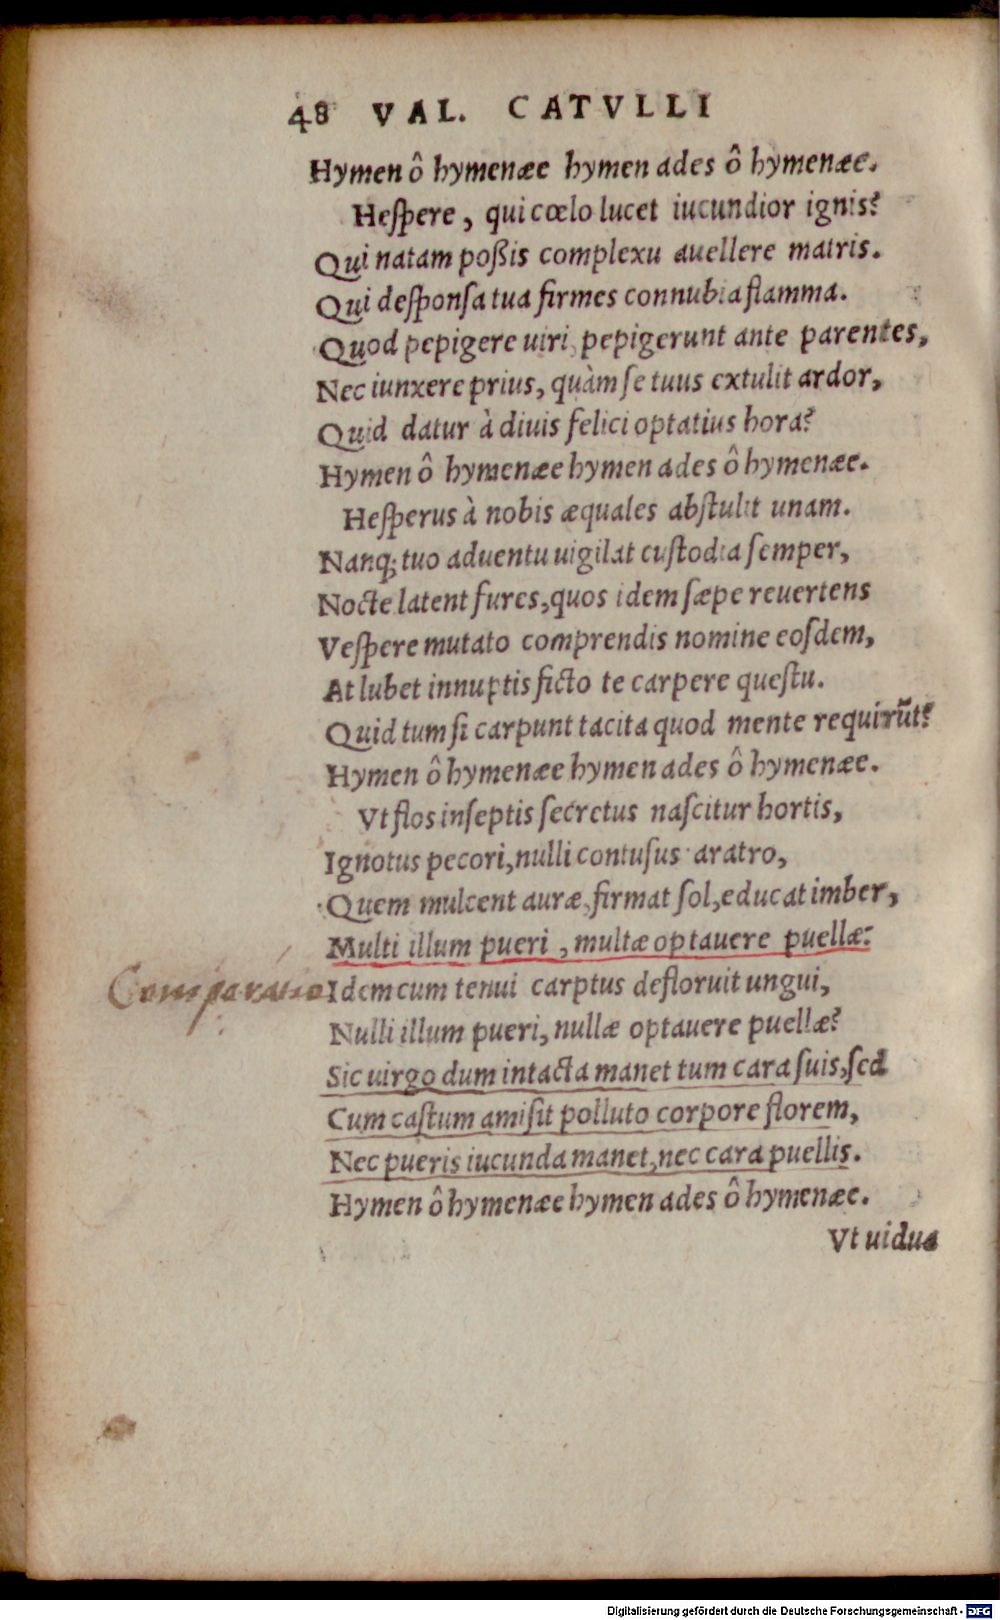 48 VAL. CATVLLI
Hymen ô hymenæe hymen ades ô hymenæe.
Heſpere, qui cœlo lucet iucundior ignis?
Qui natam poßis complexu auellere matris.
Qui deſponſa tua firmes connubia flamma.
Quod pepigere uiri, pepigerunt ante parentes,
Nec iunxere prius, quàm ſe tuus extulit ardor,
Quid datur à diuis felici optatius hora?
Hymen ô hymenæe hymen ades ô hymenæe.
Heſperus à nobis æquales abſtulit unam.
Nanq; tuo aduentu uigilat cuſtodia ſemper,
Nocte latent fures, quos idem ſæpe reuertens
Veſpere mutato comprendis nomine eoſdem,
At lubet innuptis ficto te carpere queſtu.
Quid tum ſi carpunt tacita quod mente requirūt?
Hymen ô hymenæe hymen ades ô hymenæe.
Vt flos inſeptis ſecretus naſcitur hortis,
Ignotus pecori, nulli contuſus aratro,
Quem mulcent auræ, firmat ſol, educat imber,
Multi illum pueri, multæ optauere puellæ:
Comparatio Idem cum tenui carptus defloruit ungui,
Nulli illum pueri, nullæ optauere puellæ?
Sic uirgo dum intacta manet tum cara ſuis, ſed
Cum caſtum amiſit polluto corpore florem,
Nec pueris iucunda manet, nec cara puellis.
Hymen ô hymenæe hymen ades ô hymenæe.
Vt uidua
Digitalisierung gefördert durch die Deutsche Forschungsgemeinschaft - DFG